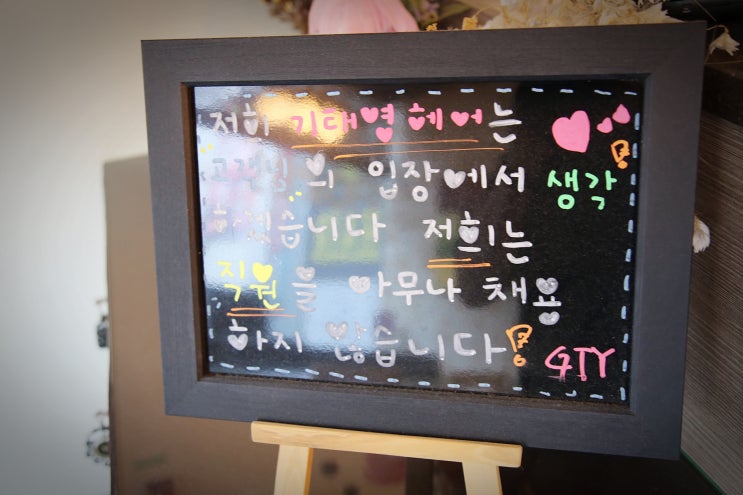 저희 기태영헤어는
고객님의 입장에서 생각
하겠습니다 저희는
직원을 아무나 채용
하지 않습니다!
GTY